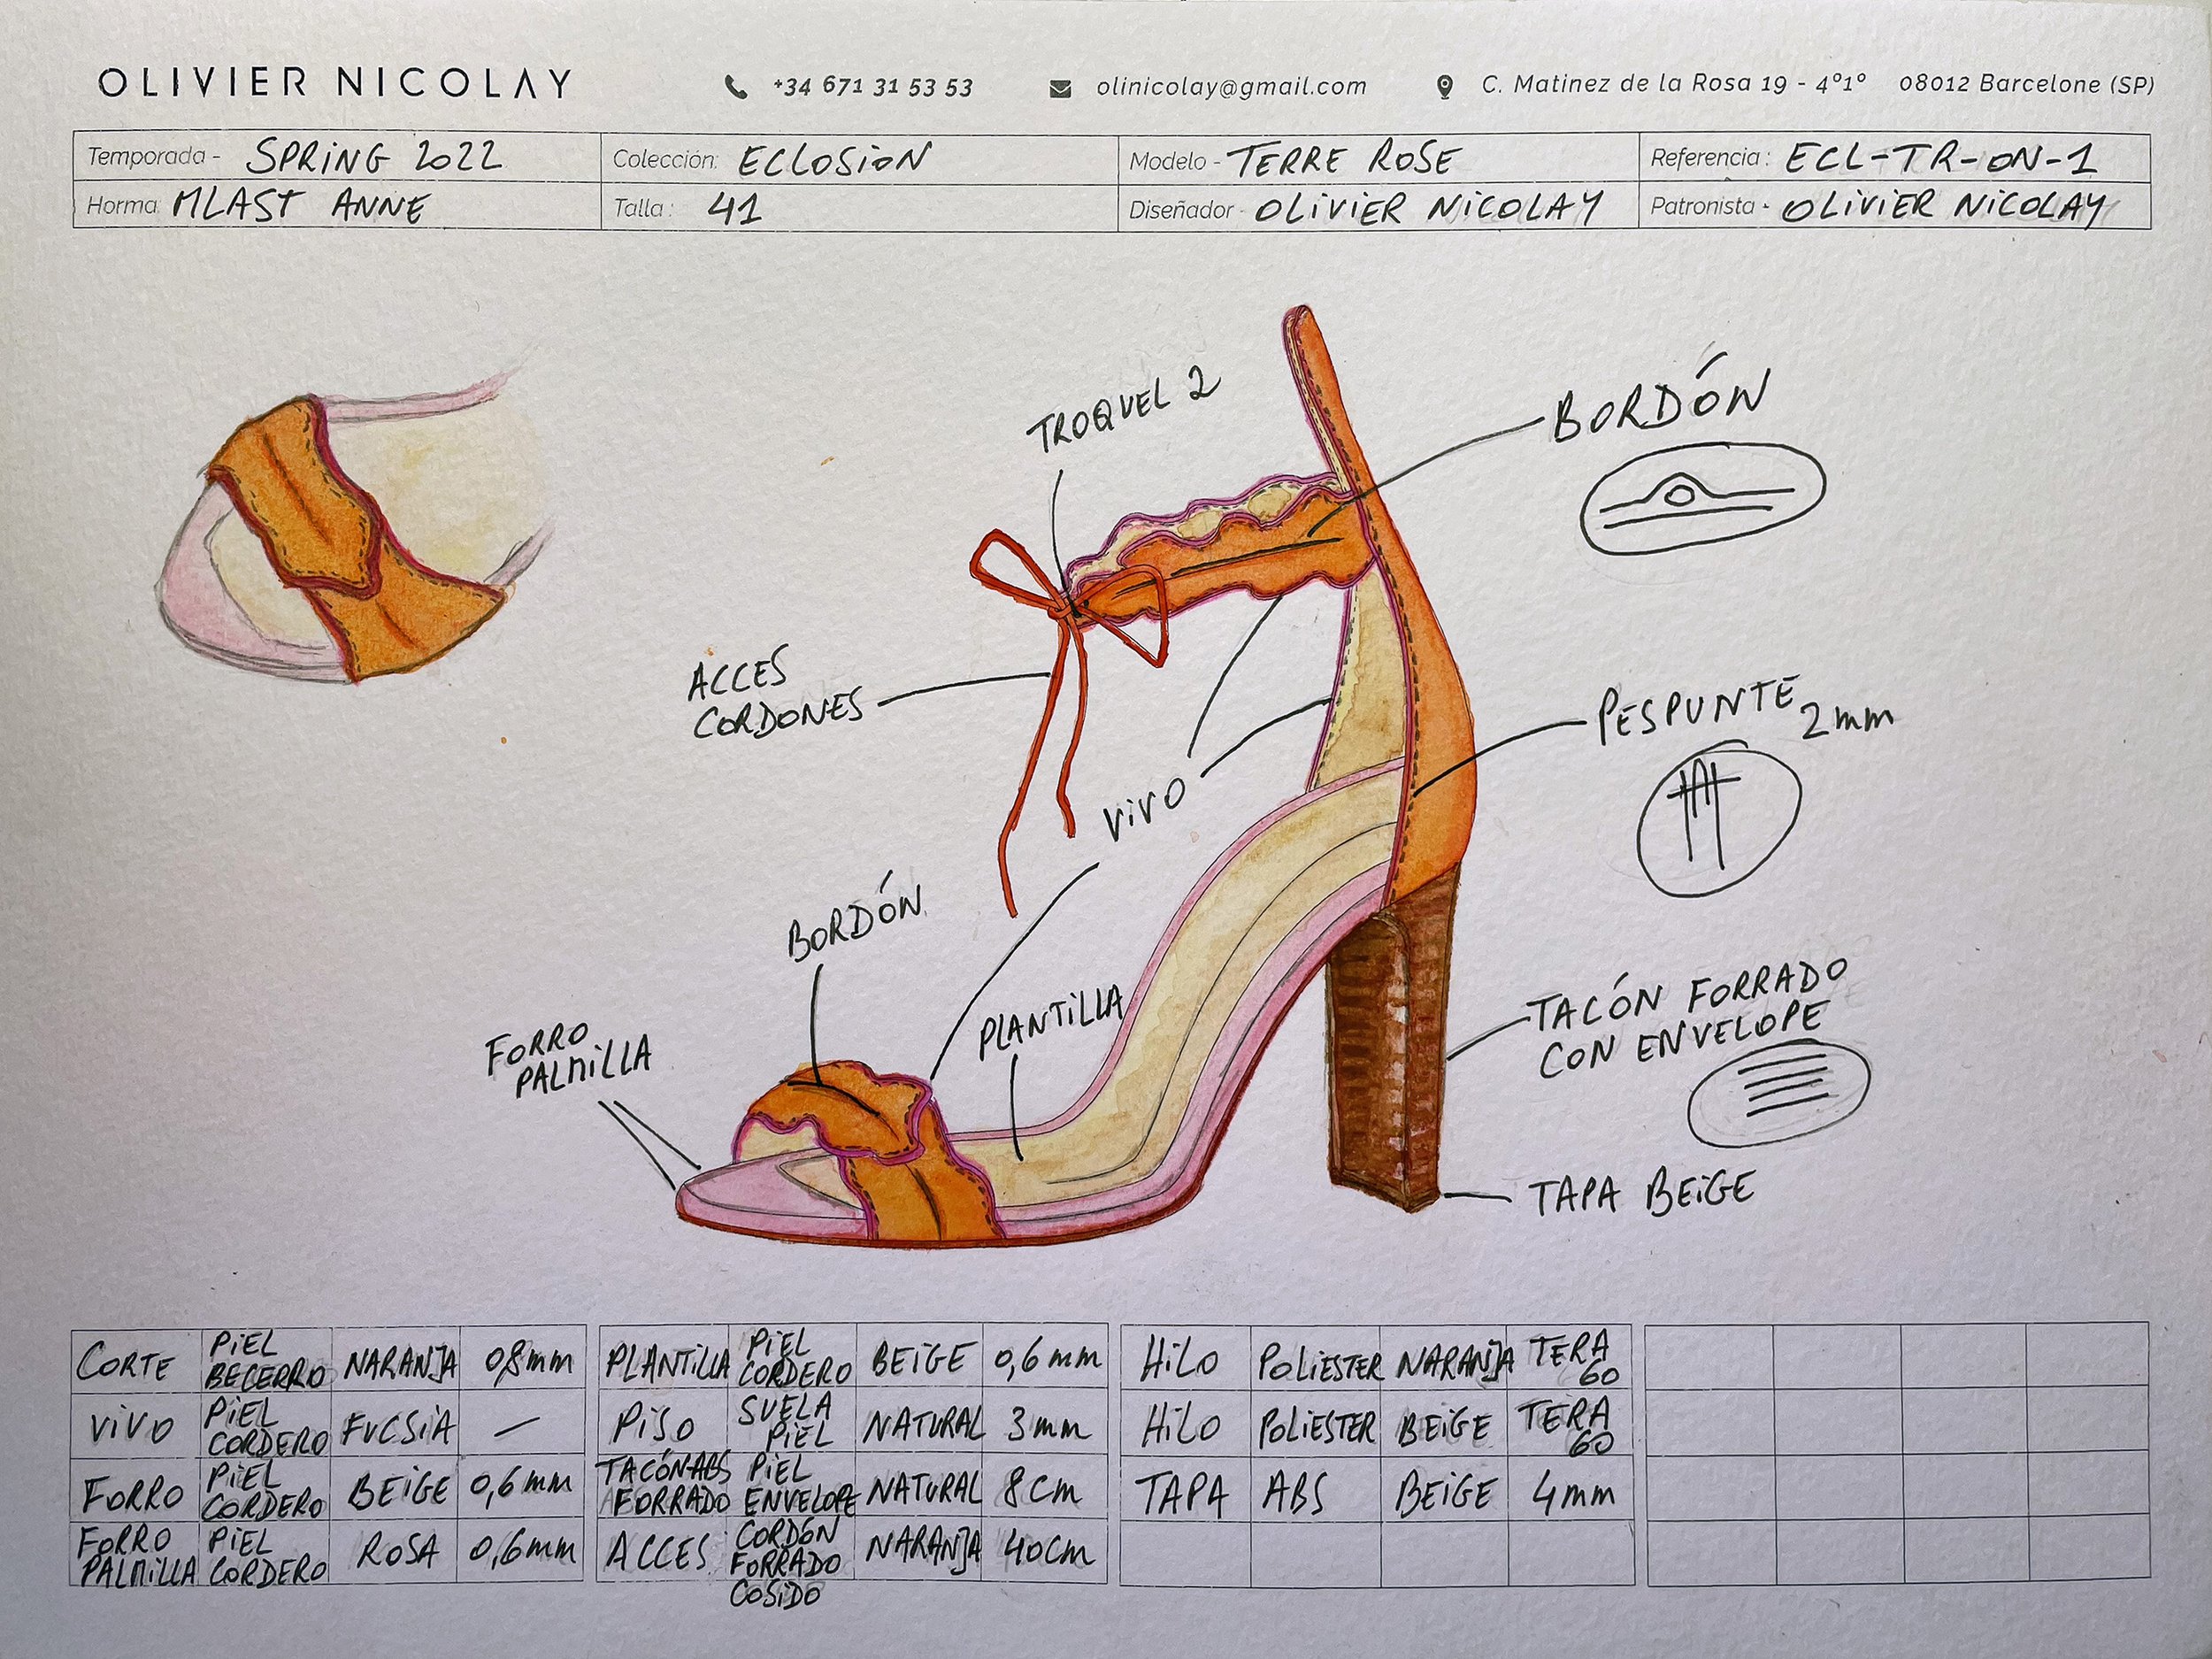 OLIVIER NICOLAY
+34 671 31 53 53
olinicolay@gmail.com
C. Matinez de la Rosa 19 - 4º1º 08012 Barcelone (SP)
Temporada - SPRING 2022
Colección: ECLOSION
Modelo - TERRE ROSE
Referencia: ECL-TR-ON-1
Horma: MLAST ANNE
Talla: 41
Diseñador - OLIVIER NICOLAY
Patronista - OLIVIER NICOLAY
TROQUEL 2
BORDÓN
ACCES
CORDONES
PESPUNTE
2mm
VIVO
BORDÓN
FORRO
PALMILLA
PLANTILLA
TACÓN FORRADO
CON ENVELOPE
TAPA BEIGE
CORTE PIEL BECERRO NARANJA 0,8mm
VIVO PIEL CORDERO FUCSIA —
FORRO PIEL CORDERO BEIGE 0,6mm
FORRO PALMILLA PIEL CORDERO ROSA 0,6mm
PLANTILLA PIEL CORDERO BEIGE 0,6mm
PISO SUELA PIEL NATURAL 3mm
TACÓN-ABS FORRADO PIEL ENVELOPE NATURAL 8cm
ACCES CORDÓN FORRADO COSIDO NARANJA 40cm
HILO POLIESTER NARANJA TERA 60
HILO POLIESTER BEIGE TERA 60
TAPA ABS BEIGE 4mm